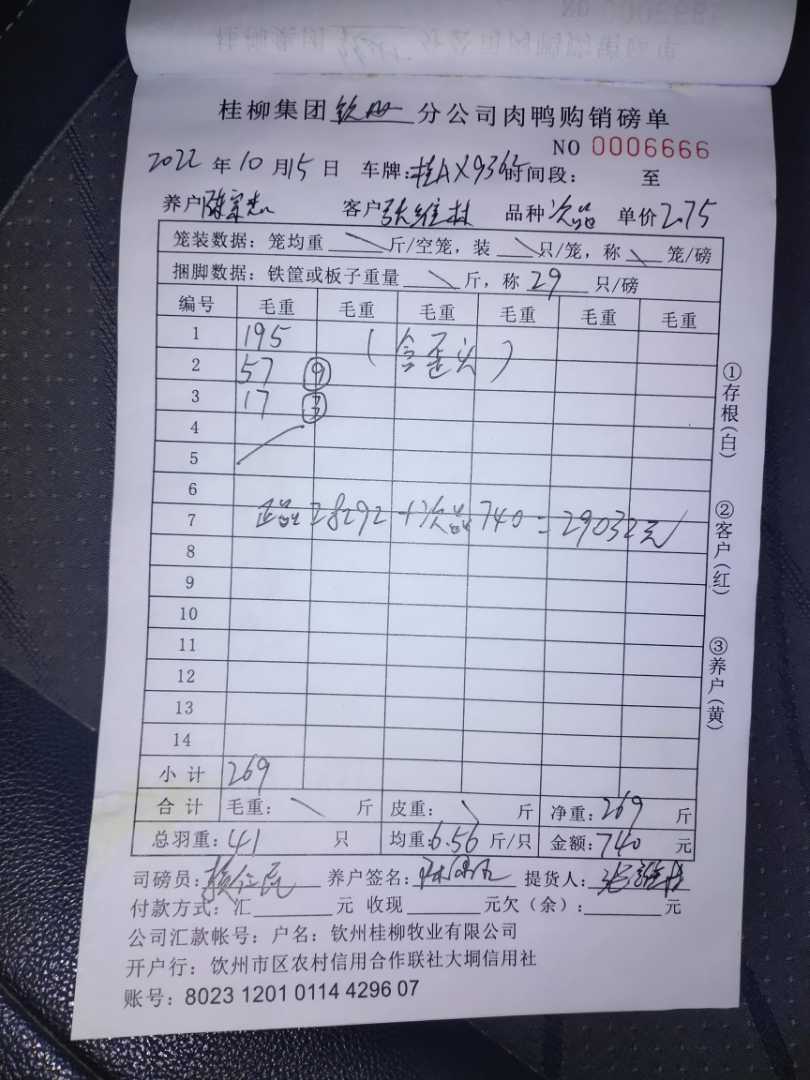 桂柳集团钦州分公司肉鸭购销磅单
NO 0006666
2022年10月15日 车牌:桂AX936 时间段: 至
养户 客户张维林 品种次品 单价2.75
笼装数据: 笼均重 斤/空笼, 装 只/笼, 称 笼/磅
捆脚数据: 铁筐或板子重量 斤, 称29只/磅
编号 毛重 毛重 毛重 毛重 毛重 毛重
1 195 (含歪头)
2 57 9
3 17 3
4
5
6
7 正品28292+次品740=29032元
8
9
10
11
12
13
14
小计 269
合计 毛重: 斤 皮重: 斤 净重:269斤
总羽重:41只 均重:6.56斤/只 金额:740元
司磅员: 养户签名: 提货人:张维林
付款方式: 汇 元 收现 元欠(余): 元
公司汇款帐号: 户名: 钦州桂柳牧业有限公司
开户行: 钦州市区农村信用合作联社大垌信用社
账号: 8023 1201 0114 4296 07
①存根(白)
②客户(红)
③养户(黄)